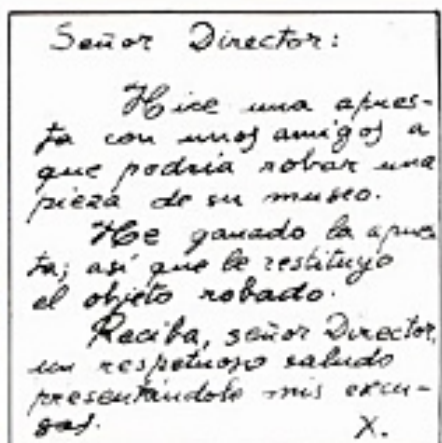 Señor Director:
Hice una apues-
ta con unos amigos a
que podría robar una
pieza de su museo.
He ganado la apues
ta; así que le restituyo
el objeto robado.
Reciba, señor Director,
un respetuoso saludo
presentándole mis excu-
sas.
X.